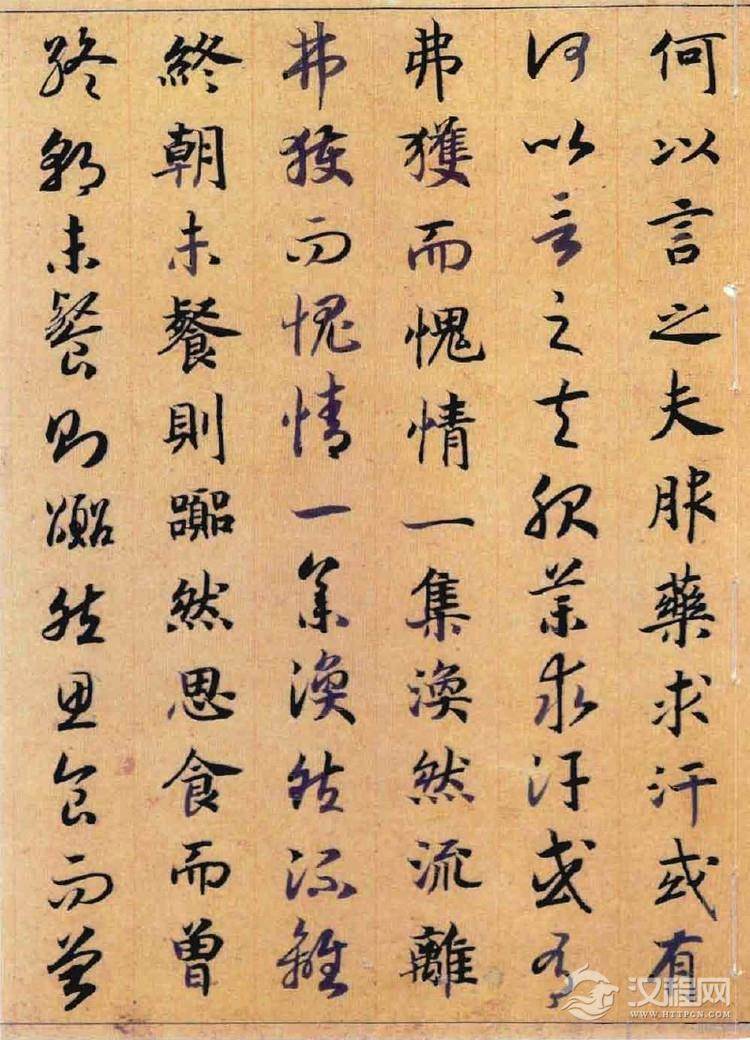 何以言之夫服藥求汗或有
何以言之夫服藥求汗或有
弗獲而愧情一集渙然流離
弗獲而愧情一集渙然流離
終朝未餐則囂然思食而曾
終朝未餐則囂然思食而曾
汉程网
WWW.HTTPCN.COM